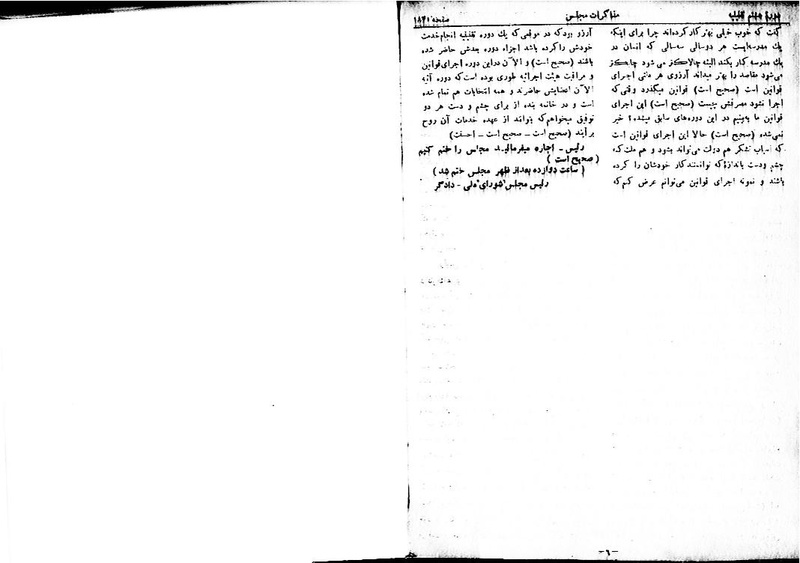 دوره پنجم تقنینیه مذاکرات مجلس صفحه ۱۸۳۱
گفت که خوب خیلی بهتر کار کرده‌اند چرا برای اینکه
یك مدرسه‌ایست هر دوسالی سه‌سالی که انسان در
یك مدرسه کار بکند البته چالاکتر می شود چابکتر
می‌شود مقاصد را بهتر میداند آرزوی هر ملتی اجرای
قوانین است (صحیح است) قوانین میگذرد وقتی‌که
اجرا نشود مصرفش چیست (صحیح است) این اجرای
قوانین ما به‌بینیم در این دوره‌های سابق میشده؟ خیر
نمی‌شده (صحیح است) حالا این اجرای قوانین است
که اسباب تشکر هم دولت می‌تواند بشود و هم ملت‌که
چشم ودست باندازهٔ که توانستند کار خودشان را کرده
باشند و نمونه اجرای قوانین می‌توانم عرض کنم‌که
آرزو بود که در موقعی که یك دوره تقنینیه انجام خدمت
خودش را کرده باشد اجزاء دوره بعدش حاضر شده
باشند (صحیح است) و الان در این دوره اجرای قوانین
و مراقبت هیئت اجرائیه طوری بوده است‌که دوره آتیه
الان اعضایش حاضرند و همه انتخابات هم تمام شده
است و در خاتمه بنده از برای چشم و دست هر دو
توفیق میخواهم‌که بتوانند از عهده خدمات آن روح
برآیند (صحیح است – صحیح است – احسنت)
رئیس – اجازه میفرمائید مجلس را ختم کنیم
(صحیح است)
(ساعت دوازده بعد از ظهر مجلس ختم شد)
رئیس مجلس شورای ملی – دادگر
–٦–